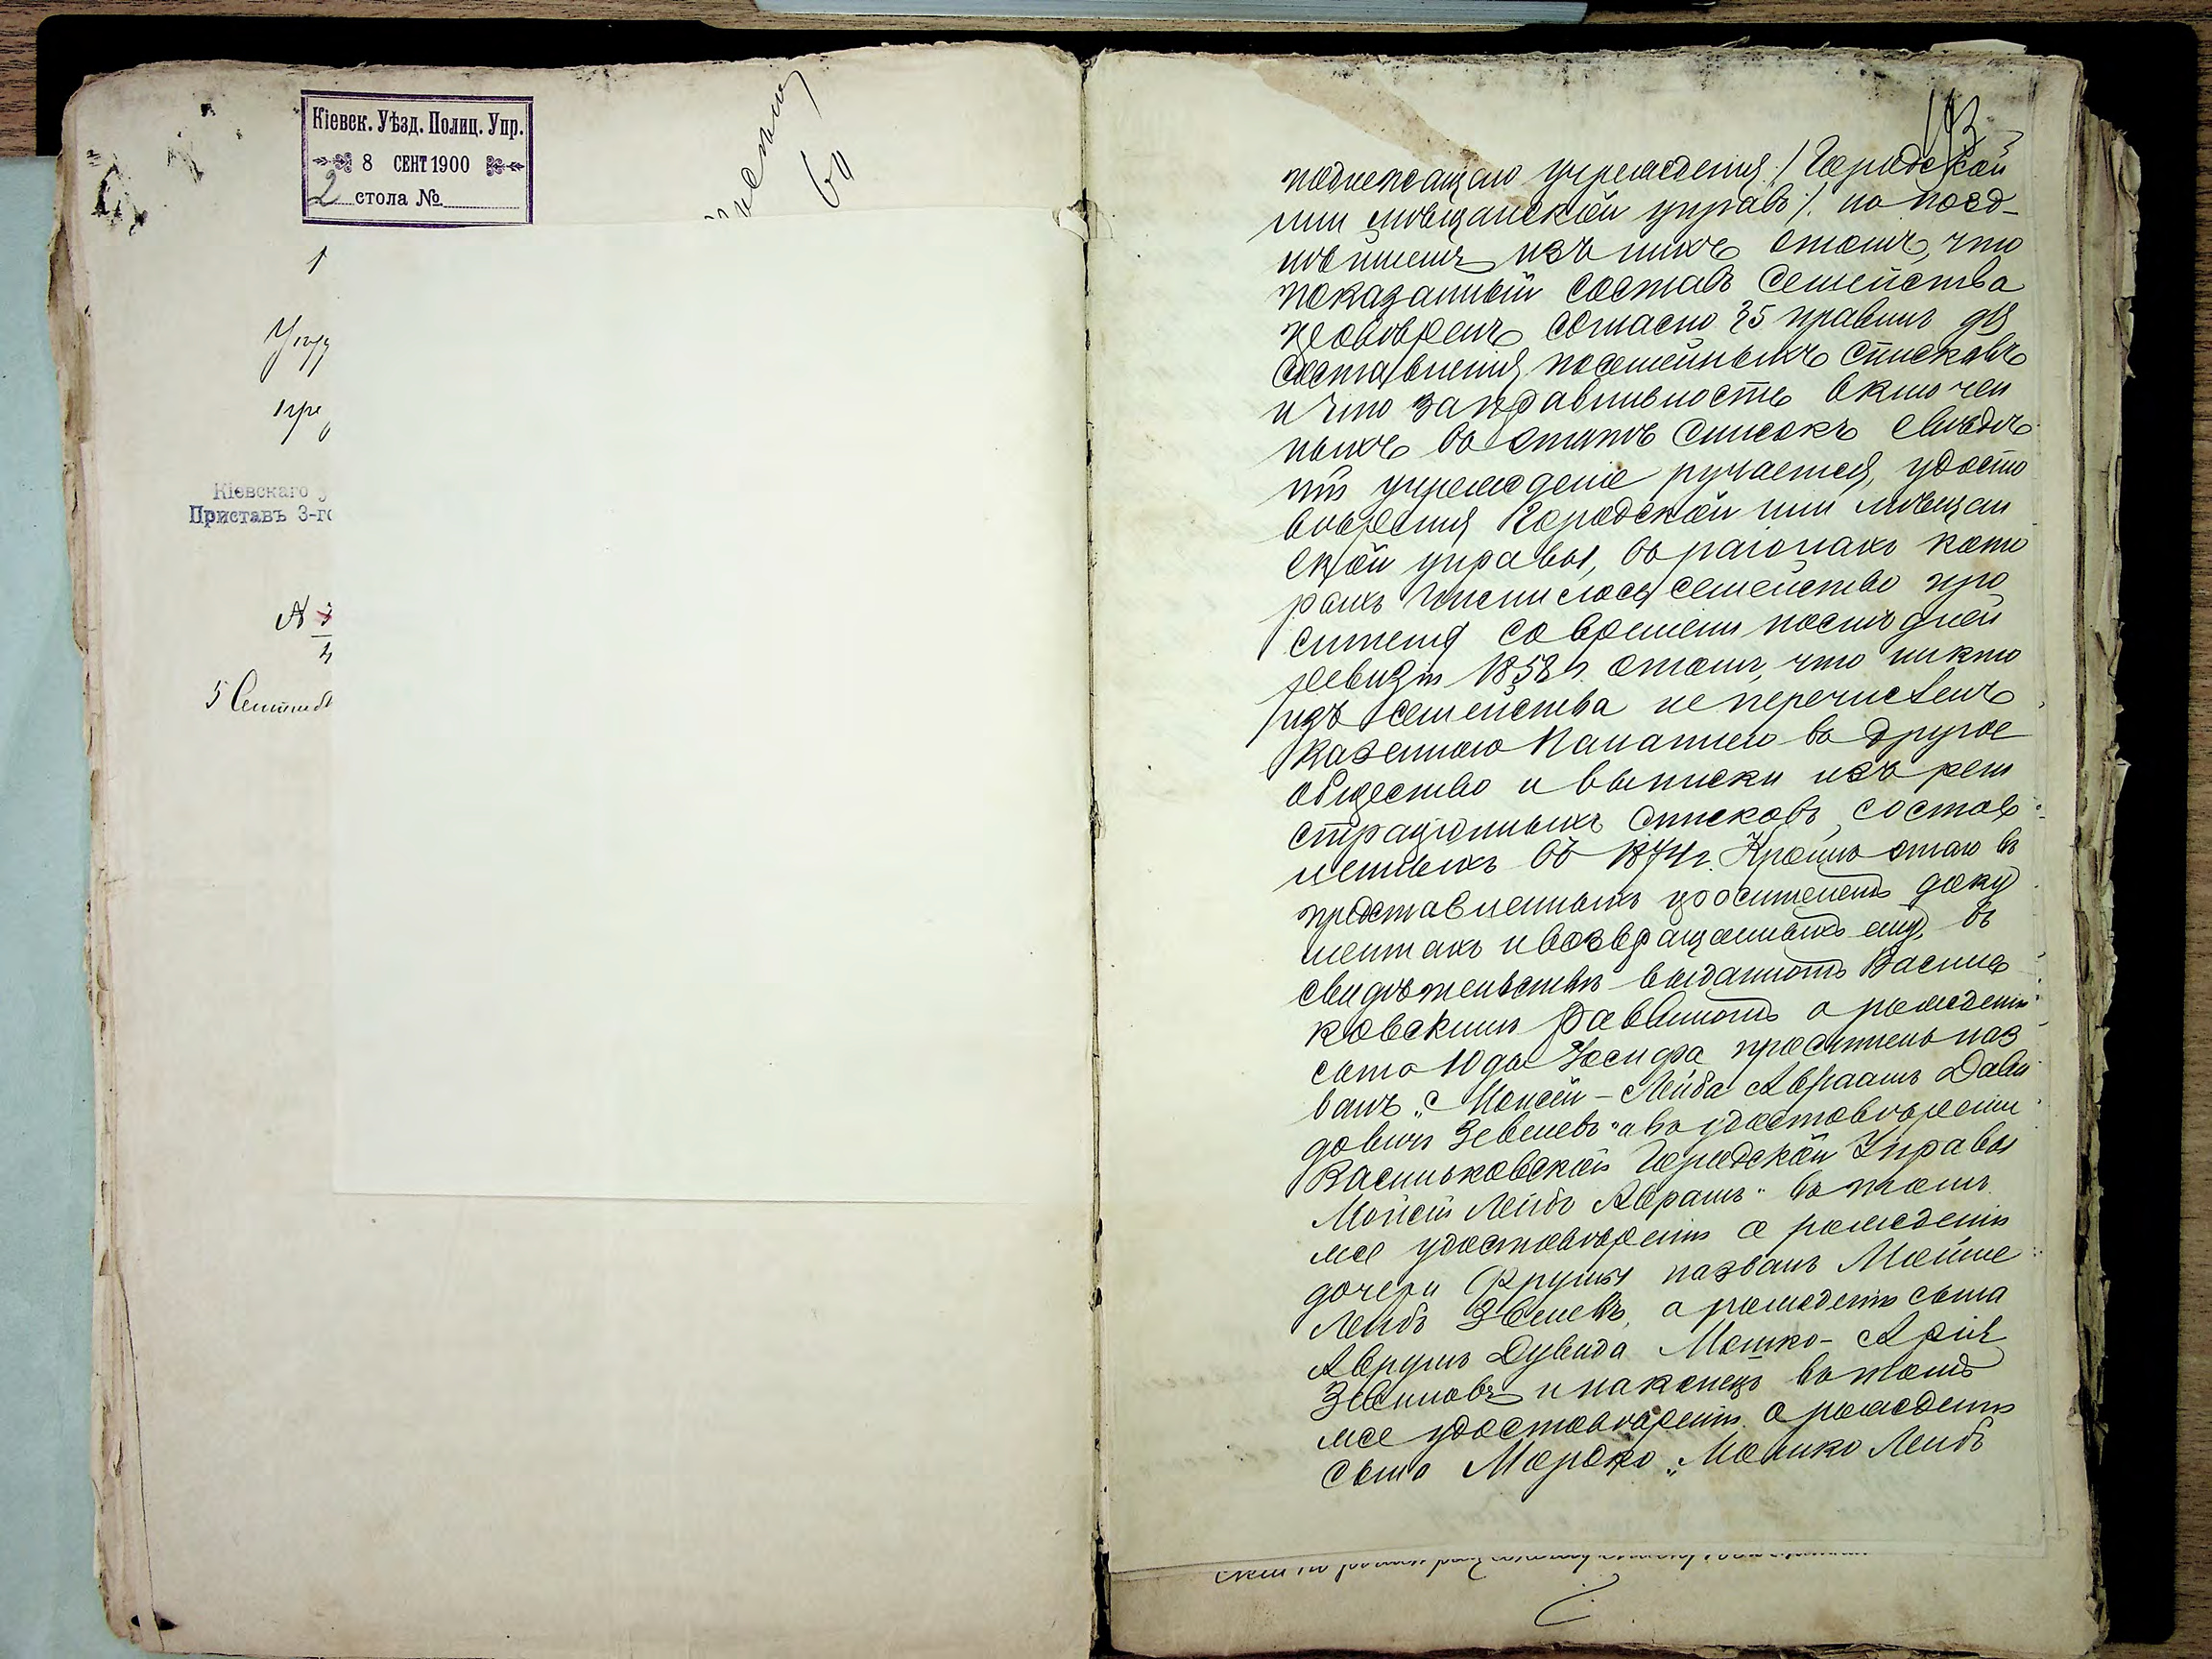 Кіевск. Уѣзд. Полиц. Упр.
8 СЕНТ 1900
2 стола №
1
пре
Кіевскаго у
Приставъ 3-го
5 Сентяб
193
подлежащаго учрежденія /: Городской
или мѣщанской управъ :/ по позд-
нѣйшему изъ нихъ о томъ, что
показанный составъ семейства
провѣренъ согласно 25 правилъ для
составленія посемейныхъ списковъ
и что за правильность включен
ныхъ въ этотъ списокъ свѣдѣ
ній учрежденіе ручается, удосто
вѣренія Городской или мѣщан
ской управы, въ раіонахъ кото
рыхъ числилось семейство про
сителя со времени послѣдней
ревизіи 1858 г. о томъ, что никто
изъ семейства не перечисленъ
Казенною Палатою въ другое
общество и выписки изъ реги
страціонныхъ списковъ, состав
ленныхъ въ 1874 г. Кромѣ этого въ
представленныхъ просителемъ доку
ментахъ и возвращаемыхъ ему, въ
свидѣтельствѣ выданномъ Василь
ковскимъ Раввиномъ о рожденіи
сына Юды Іосифа проситель наз
ванъ „Моисей-Лейба Авраамъ Дави
довичъ Зевелевъ" а въ удостовѣреніи
Васильковской Городской Управы
Мойсей Лейбъ Аврамъ" въ томъ
же удостовѣреніи о рожденіи
дочери Фрумы названъ Мойше
Лейбъ Звелевъ, о рожденіи сына
Аврумъ Дувида Мошко-Арія
Звеновъ и наконецъ въ томъ
же удостовѣреніи о рожденіи
сына Мордко „Мошко Лейбъ